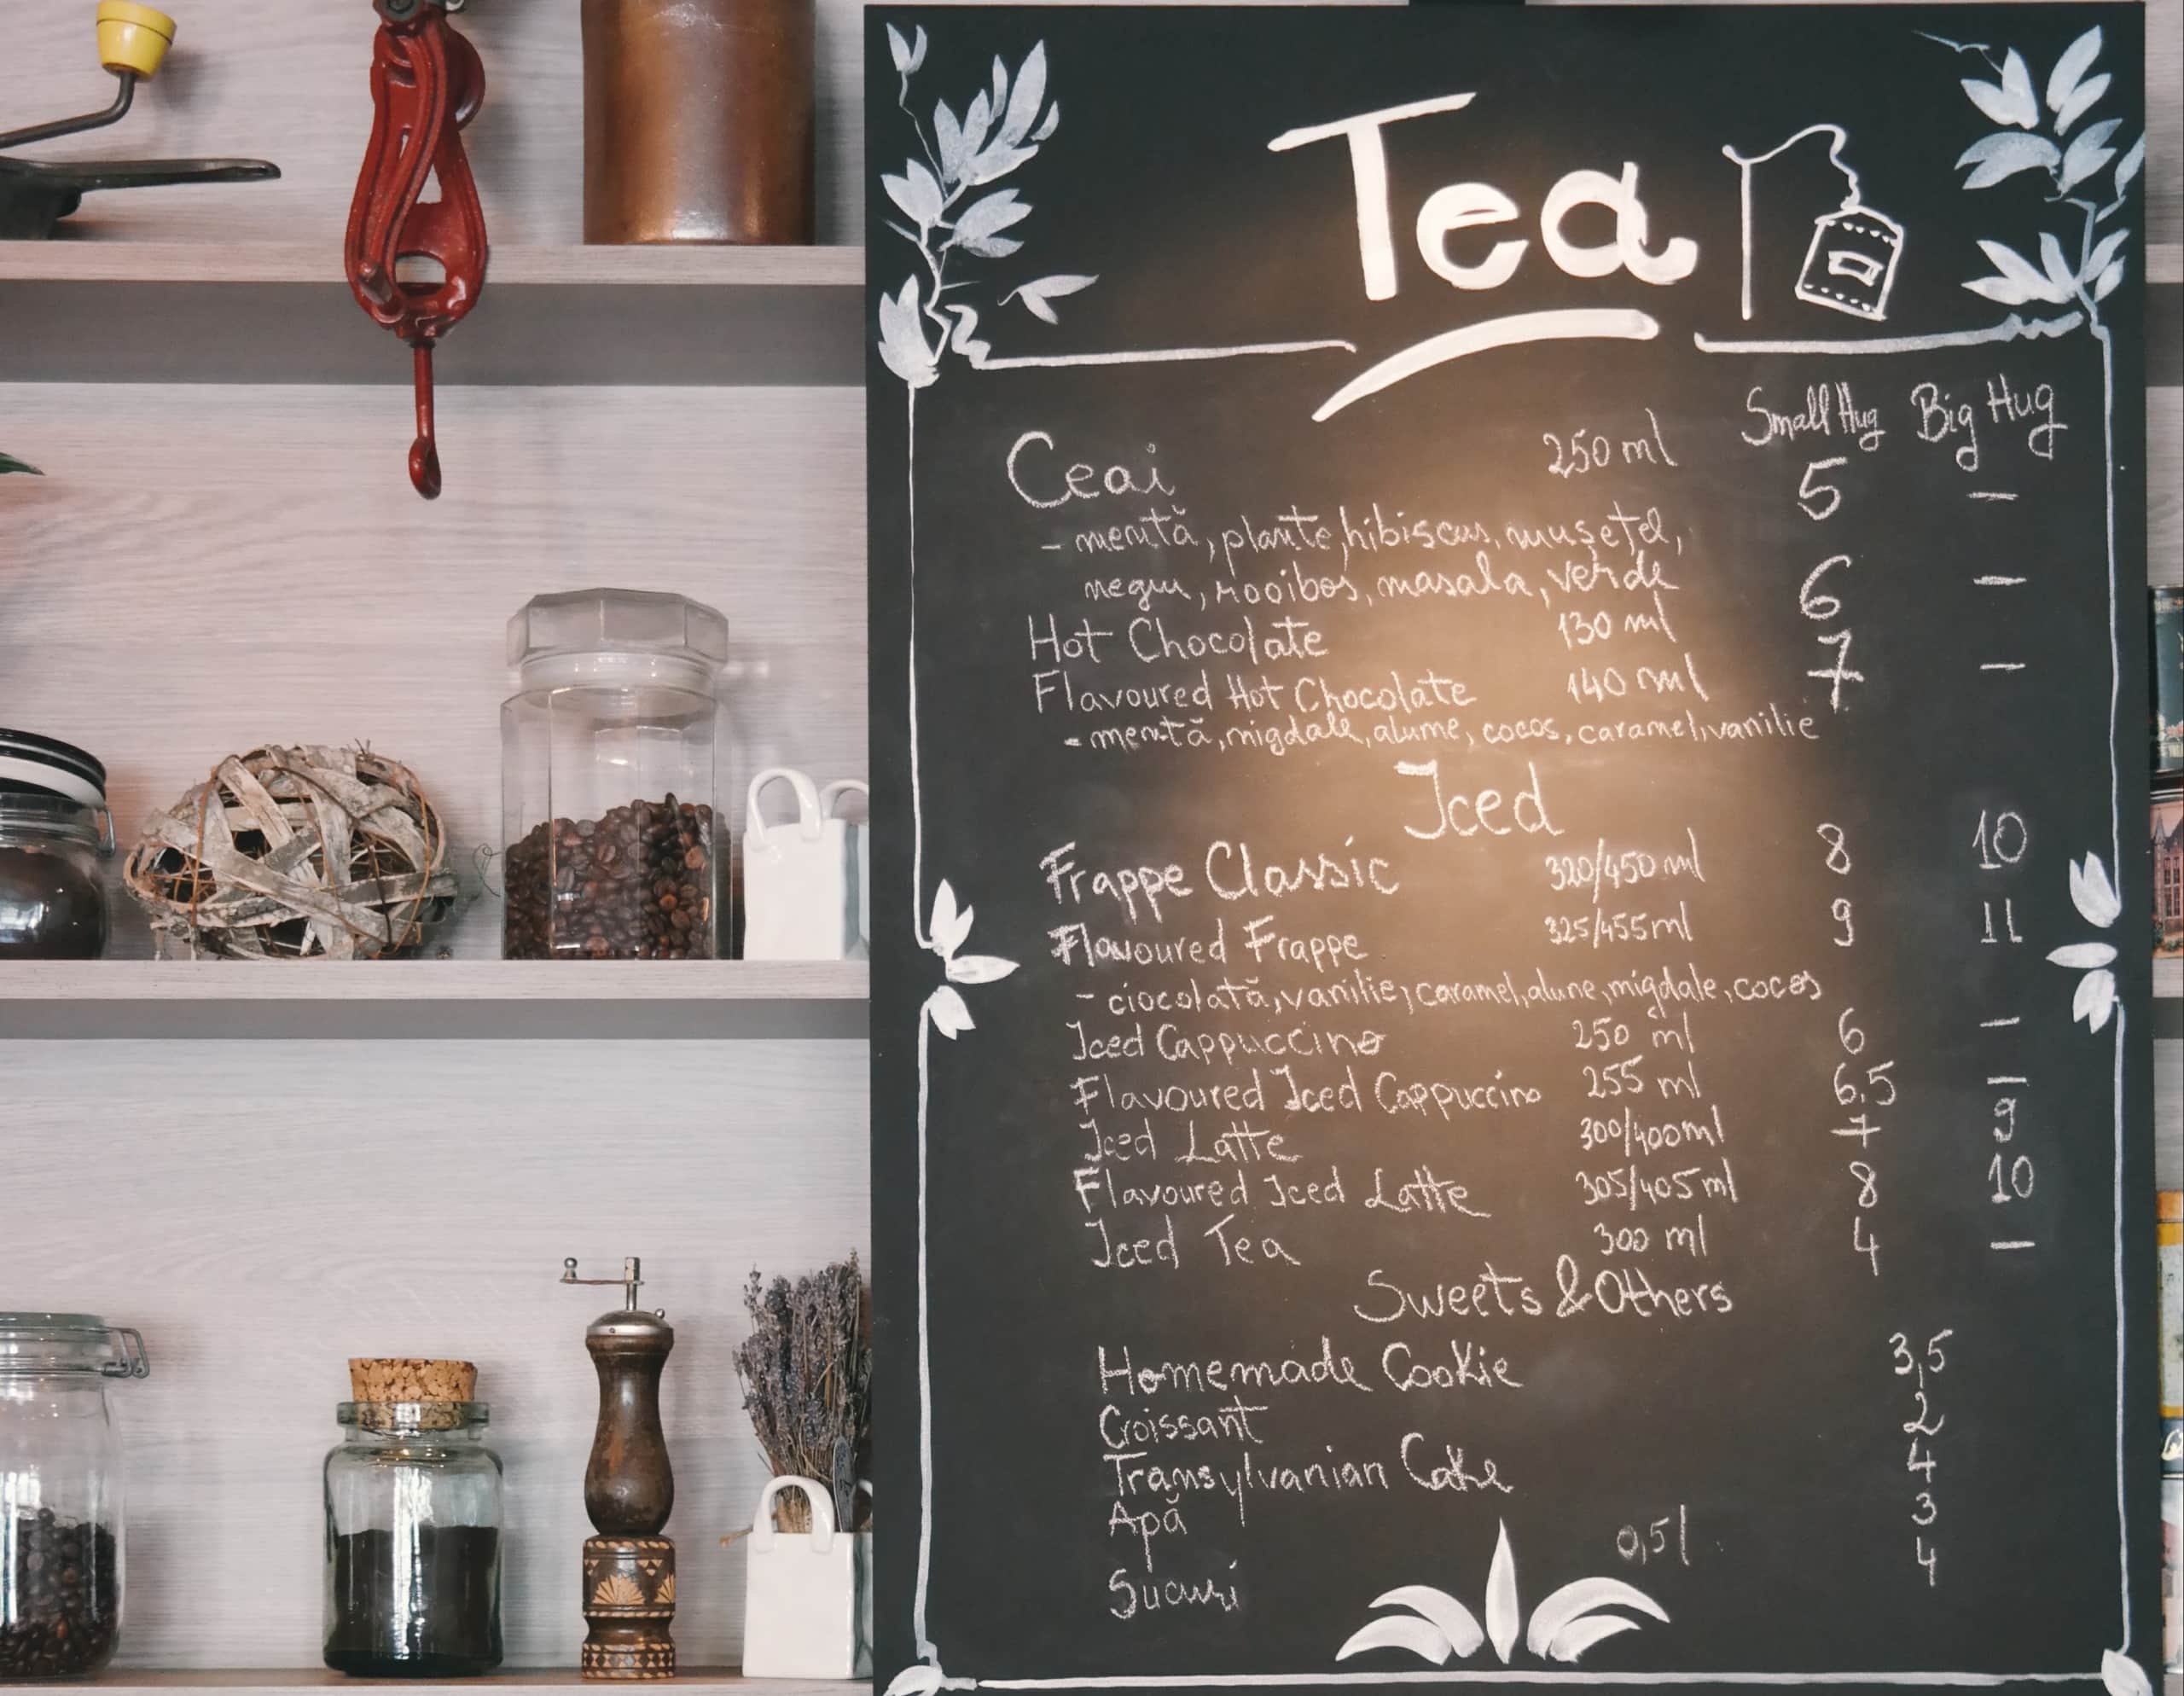 Tea
Small Hug Big Hug
Ceai 250 ml 5 –
- mentă, plante, hibiscus, mușețel,
negru, rooibos, masala, verde
Hot Chocolate 130 ml 6 –
Flavoured Hot Chocolate 140 ml 7 –
- mentă, migdale, alune, cocos, caramel, vanilie
Iced
Frappe Classic 320/450 ml 8 10
Flavoured Frappe 325/455ml 9 11
- ciocolată, vanilie, caramel, alune, migdale, cocos
Iced Cappuccino 250 ml 6 –
Flavoured Iced Cappuccino 255 ml 6,5 –
Iced Latte 300/400ml 7 9
Flavoured Iced Latte 305/405 ml 8 10
Iced Tea 300 ml 4 –
Sweets & Others
Homemade Cookie 3,5
Croissant 2
Transylvanian Cake 4
Apă 0,5 l 3
Sucuri 4